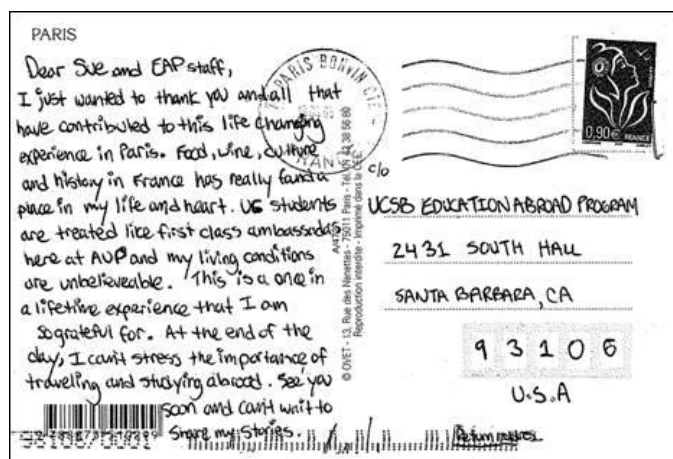 PARIS
Dear Sue and EAP staff,
I just wanted to thank you and all that
have contributed to this life changing
experience in Paris. Food, wine, culture
and history in France has really found a
place in my life and heart. UC students
are treated like first class ambassadors
here at AUP and my living conditions
are unbelieveable. This is a once in
a lifetime experience that I am
so grateful for. At the end of the
day, I can't stress the importance of
traveling and studying abroad. See you
soon and can't wait to
share my stories.
PARIS BONVIN CTC
© OVET - 13, Rue des Nanettes - 75011 Paris - Tél. 38 56 80
Reproduction interdite - Imprimé dans la CEE
0,90€ FRANCE
c/o
UCSB EDUCATION ABROAD PROGRAM
2431 SOUTH HALL
SANTA BARBARA, CA
93106
U.S.A